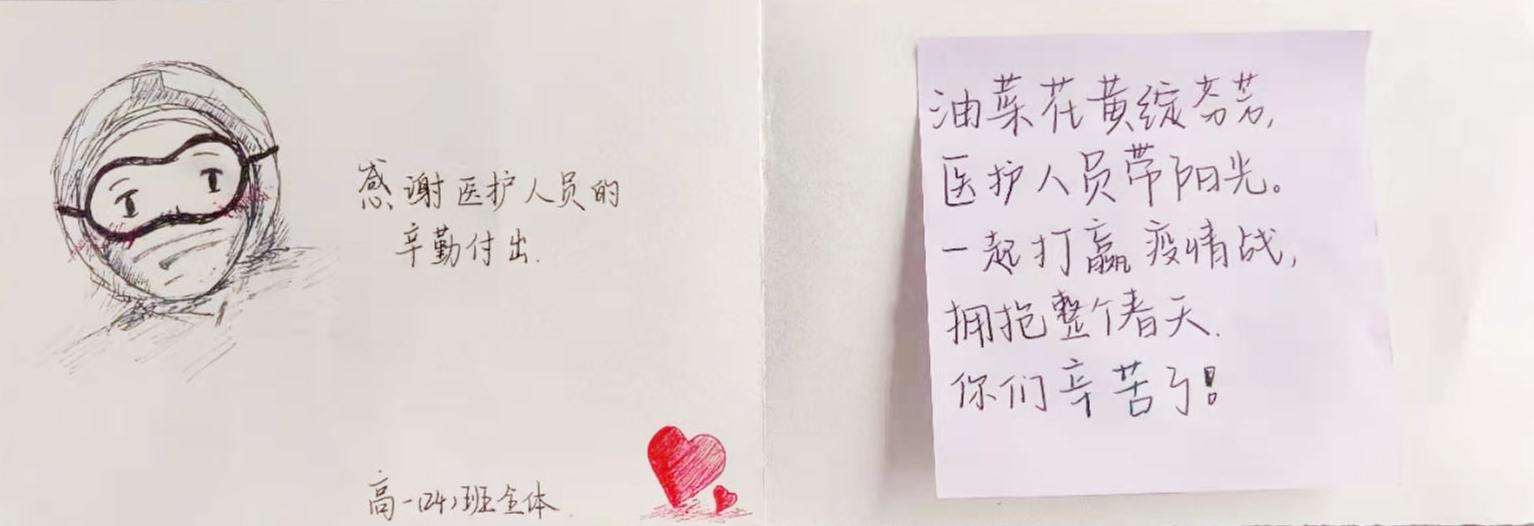 感谢医护人员的
辛勤付出.
高一(24)班全体
油菜花黄绽芬芳,
医护人员带阳光。
一起打赢疫情战,
拥抱整个春天.
你们辛苦了!